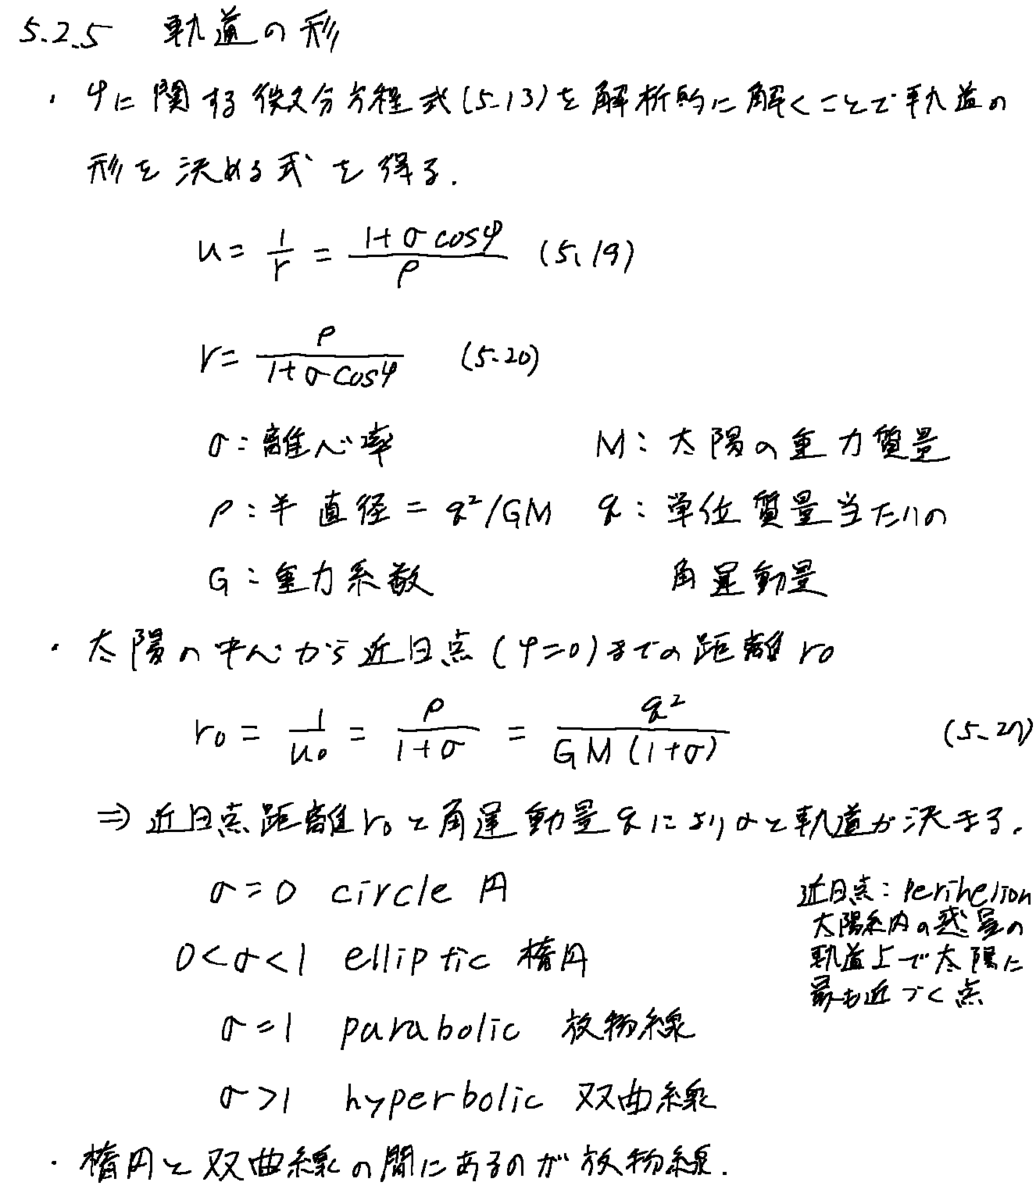 5.2.5 軌道の形
・φに関する微分方程式(5.13)を解析的に解くことで軌道の
形を決める式を得る.
u = 1/r = (1+σcosφ)/ρ (5.19)
r = ρ/(1+σcosφ) (5.20)
σ:離心率 M:太陽の重力質量
ρ:半直径 = q²/GM q:単位質量当たりの
G:重力系数 角運動量
・太陽の中心から近日点(φ=0)までの距離r₀
r₀ = 1/u₀ = ρ/(1+σ) = q²/(GM(1+σ))
⇒ 近日点距離r₀と角運動量qによりσと軌道が決まる.
σ=0 circle 円
0<σ<1 elliptic 楕円
σ=1 parabolic 放物線
σ>1 hyperbolic 双曲線
近日点:perihelion
太陽系内の惑星の
軌道上で太陽に
最も近づく点
・楕円と双曲線の間にあるのが放物線.